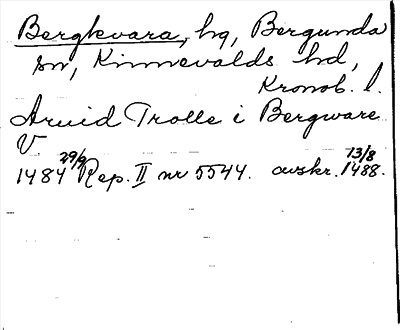 Bergkvara, hg, Bergunda
sn, Kinnevalds hd,
Kronob. l.
Arvid Trolle i Bergware
V
1484 29/9 Rep. II nr 5544. avskr. 13/8 1488.